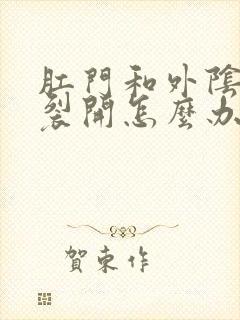 肛門和外陰
裂開怎麼办
賀東作